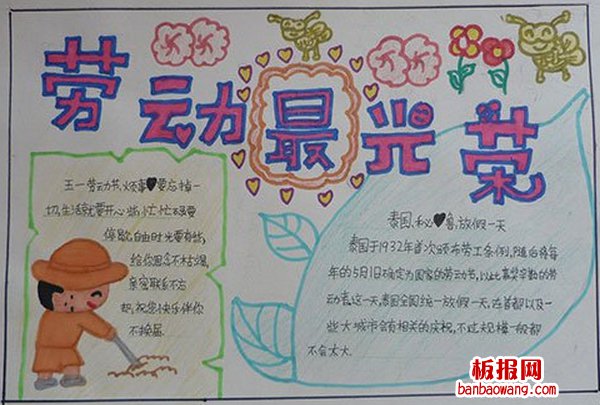 劳动最光荣
五一劳动节,烦事要忘掉一
切,生活就要开心些,忙忙碌要
停歇,自由时光要有些,
给你思念不枯竭,
亲密联系不
把,祝您快乐伴你
不换届.
泰国、秘鲁,放假一天
泰国于1932年首次颁布劳工条例,随后将每
年的5月1日确定为国家的劳动节,以此嘉奖辛勤的劳
动者,这一天,泰国全国统一放假一天,在首都以及一
些大城市会有相关的庆祝,不过规模一般都
不会太大.
板报网
banbaowang.com